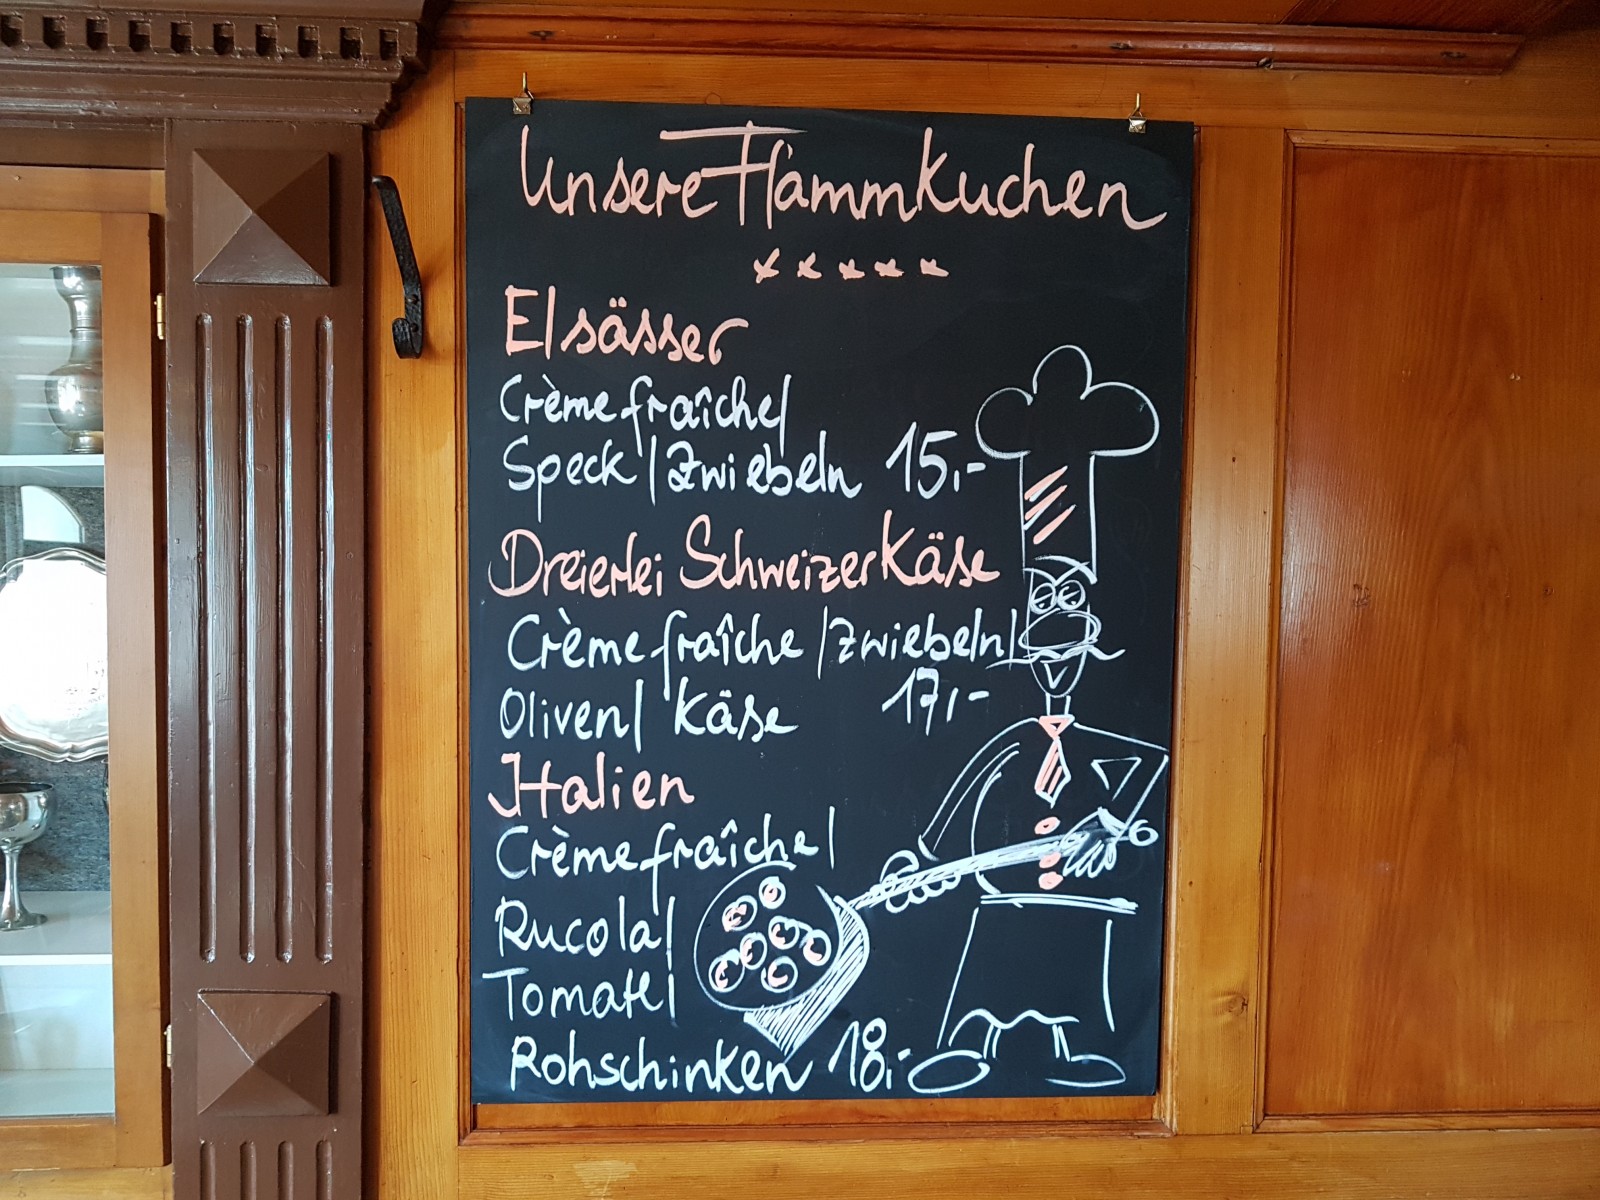 Unsere Flammkuchen
Elsässer
Crème fraîche/
Speck/Zwiebeln 15.-
Dreierlei Schweizer Käse
Crème fraîche/Zwiebeln/
Oliven/Käse 17.-
Italien
Crème fraîche/
Rucola/
Tomate/
Rohschinken 18.-